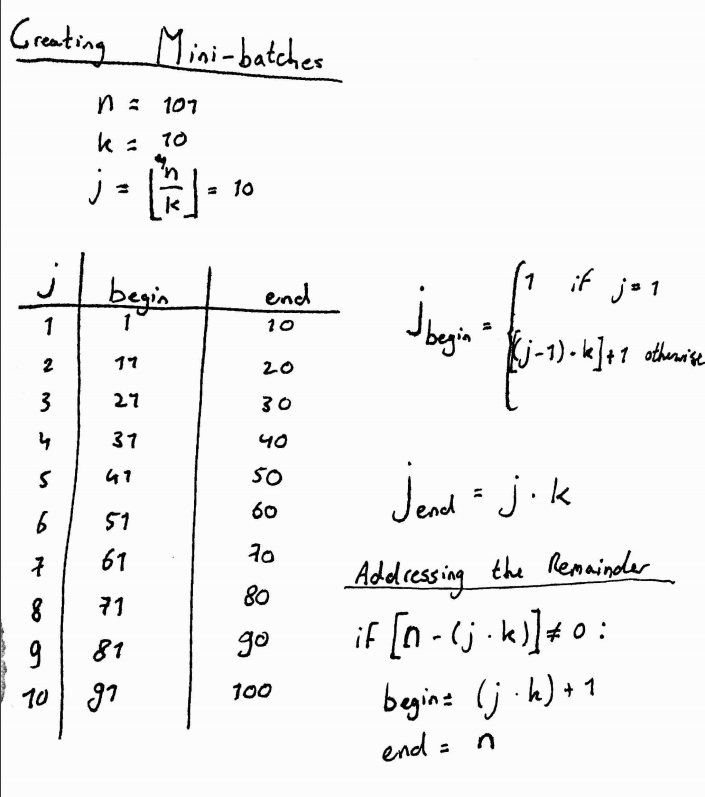 Creating Mini-batches
n = 101
k = 10
j = ⌊n/k⌋ = 10
j begin end
1 1 10
2 11 20
3 21 30
4 31 40
5 41 50
6 51 60
7 61 70
8 71 80
9 81 90
10 91 100
j begin = { 1 if j = 1
[(j-1)·k]+1 otherwise
j end = j · k
Addressing the Remainder
if [n - (j · k)] ≠ 0 :
begin = (j · k) + 1
end = n